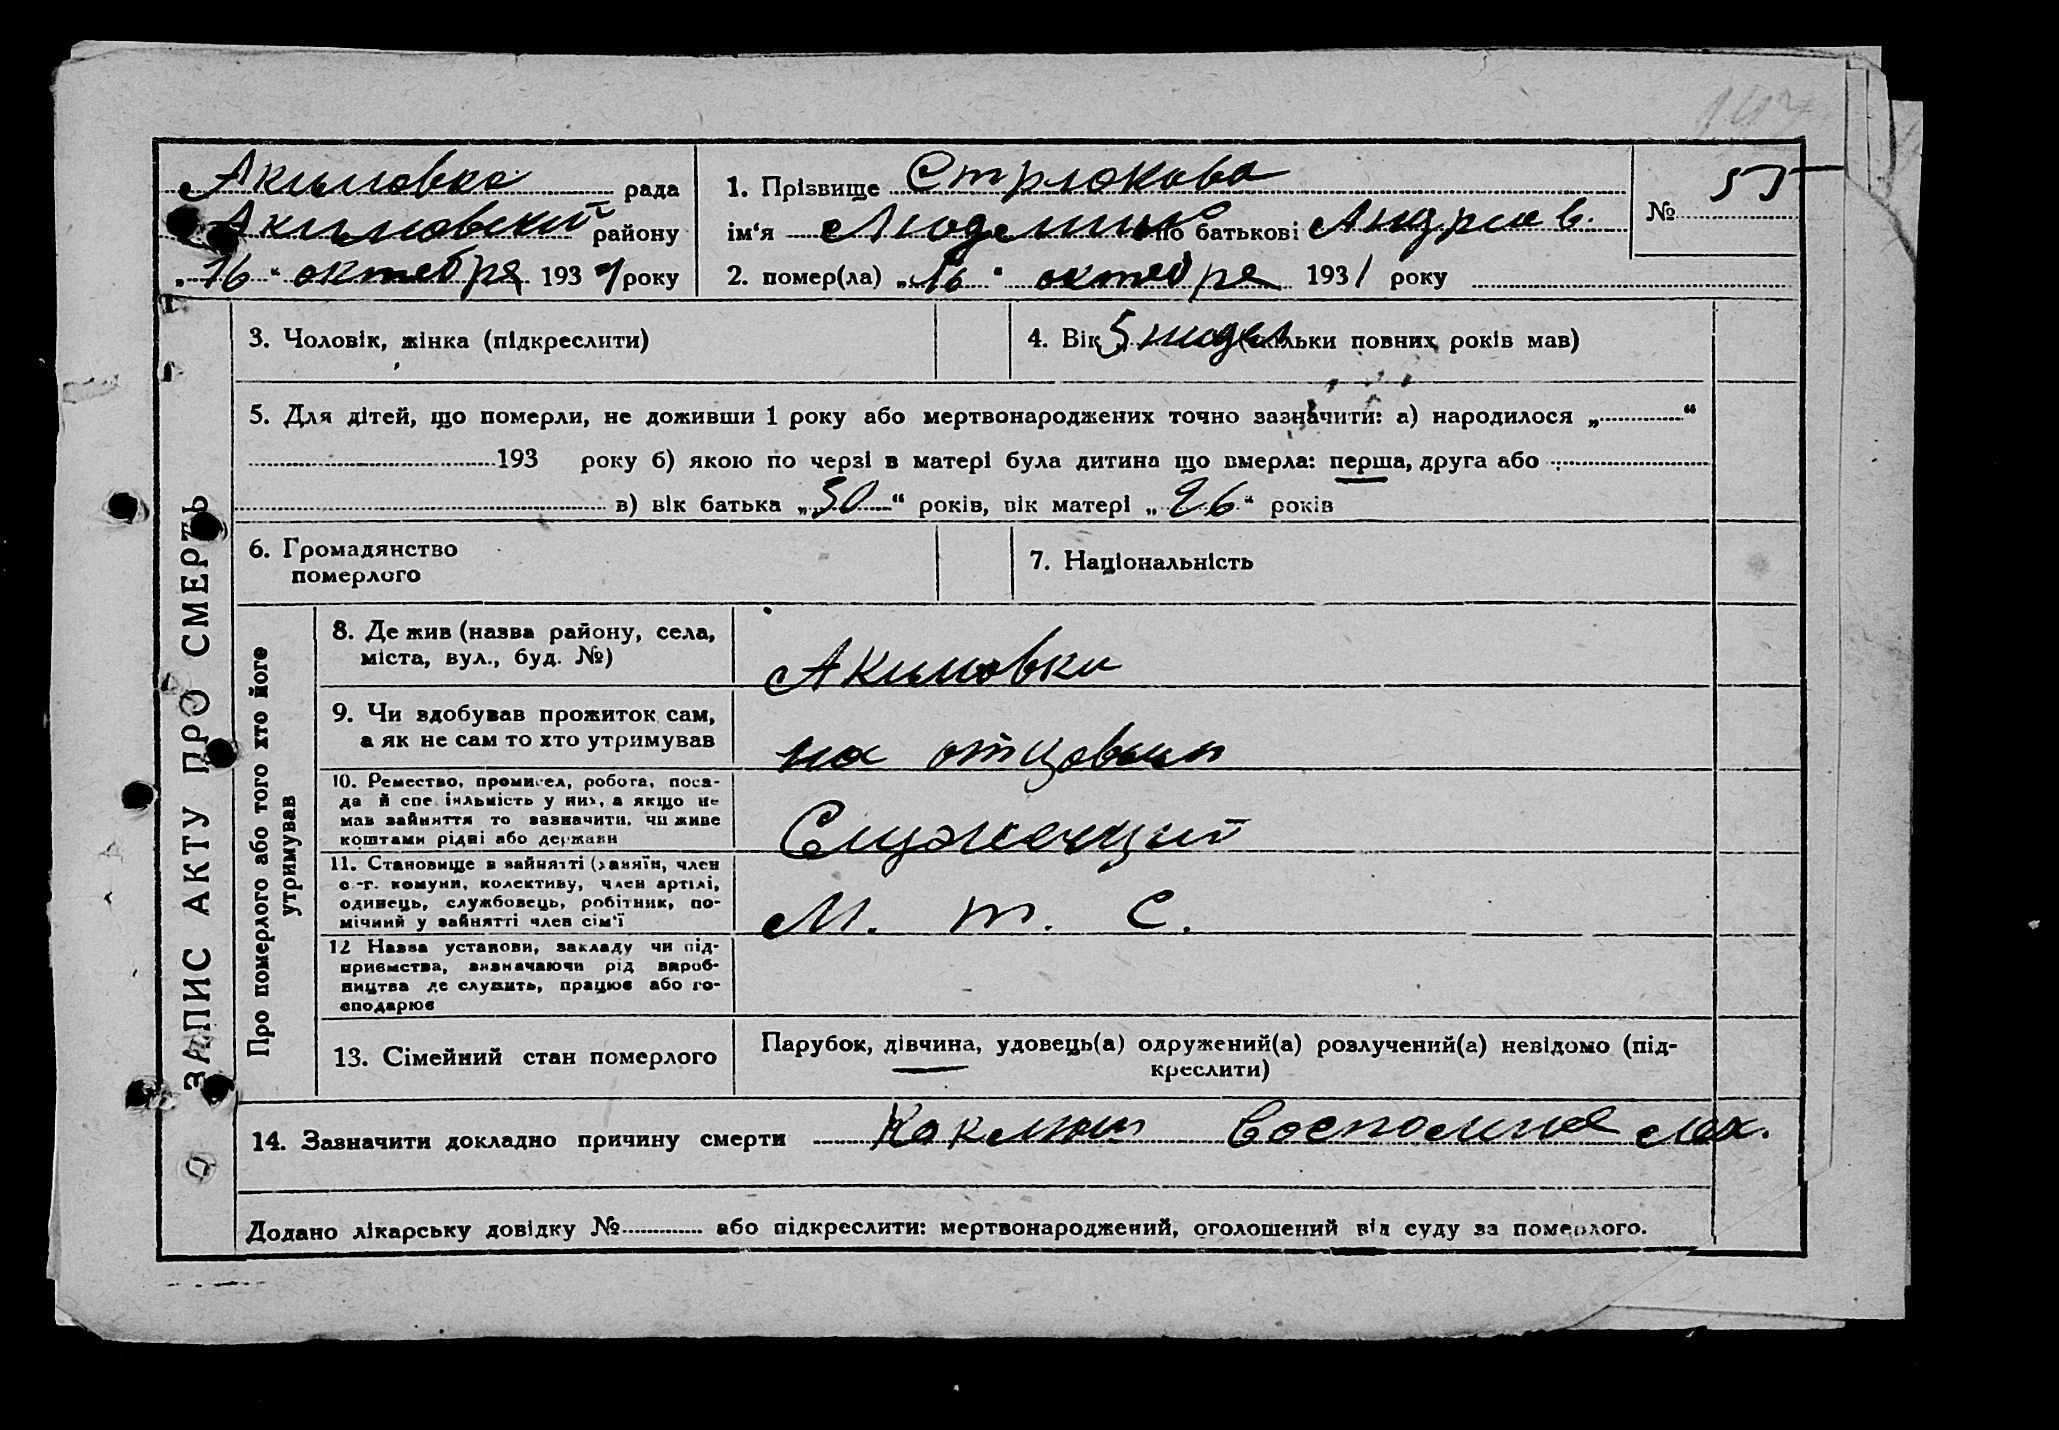 Акимовка рада
Акимовский району
„16“ октября 1931 року
1. Прізвище Стрлокова
ім‘я по батькові Андрив.
2. помер(ла) „16“ октебря 1931 року
№ 55
3. Чоловік, жінка (підкреслити)
4. Вік 5 (скільки повних років мав)
5. Для дітей, що померли, не доживши 1 року або мертвонароджених точно зазначити: а) народилося „ “
193 року б) якою по черзі в матері була дитина що вмерла: перша, друга або
в) вік батька „30“ років, вік матері „26“ років
6. Громадянство
померлого
7. Національність
ЗАПИС АКТУ ПРО СМЕРТЬ
Про померлого або того хто його
утримував
8. Де жив (назва району, села,
міста, вул., буд. №)
Акимовка
9. Чи вдобував прожиток сам,
а як не сам то хто утримував
на отцовым
10. Ремество, промисел, робота, поса-
да й спеціяльність у них, а якщо не
мав зайняття то зазначити, чи живе
коштами рідні або держави
Служачий
11. Становище в зайнятті (хазяїн, член
с.-г. комуни, колективу, член артілі,
одинець, службовець, робітник, по-
мічний у зайнятті член сім‘ї
М. т. С.
12 Назва установи, закладу чи під-
приємства, визначаючи рід вироб-
ництва де служить, працює або го-
сподарює
13. Сімейний стан померлого
Парубок, дівчина, удовець(а) одружений(а) розлучений(а) невідомо (під-
креслити)
14. Зазначити докладно причину смерти
Додано лікарську довідку № або підкреслити: мертвонароджений, оголошений від суду за померлого.